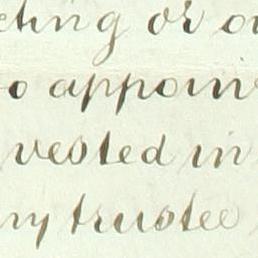 cting or o
o appoin
vested in
ny trustee